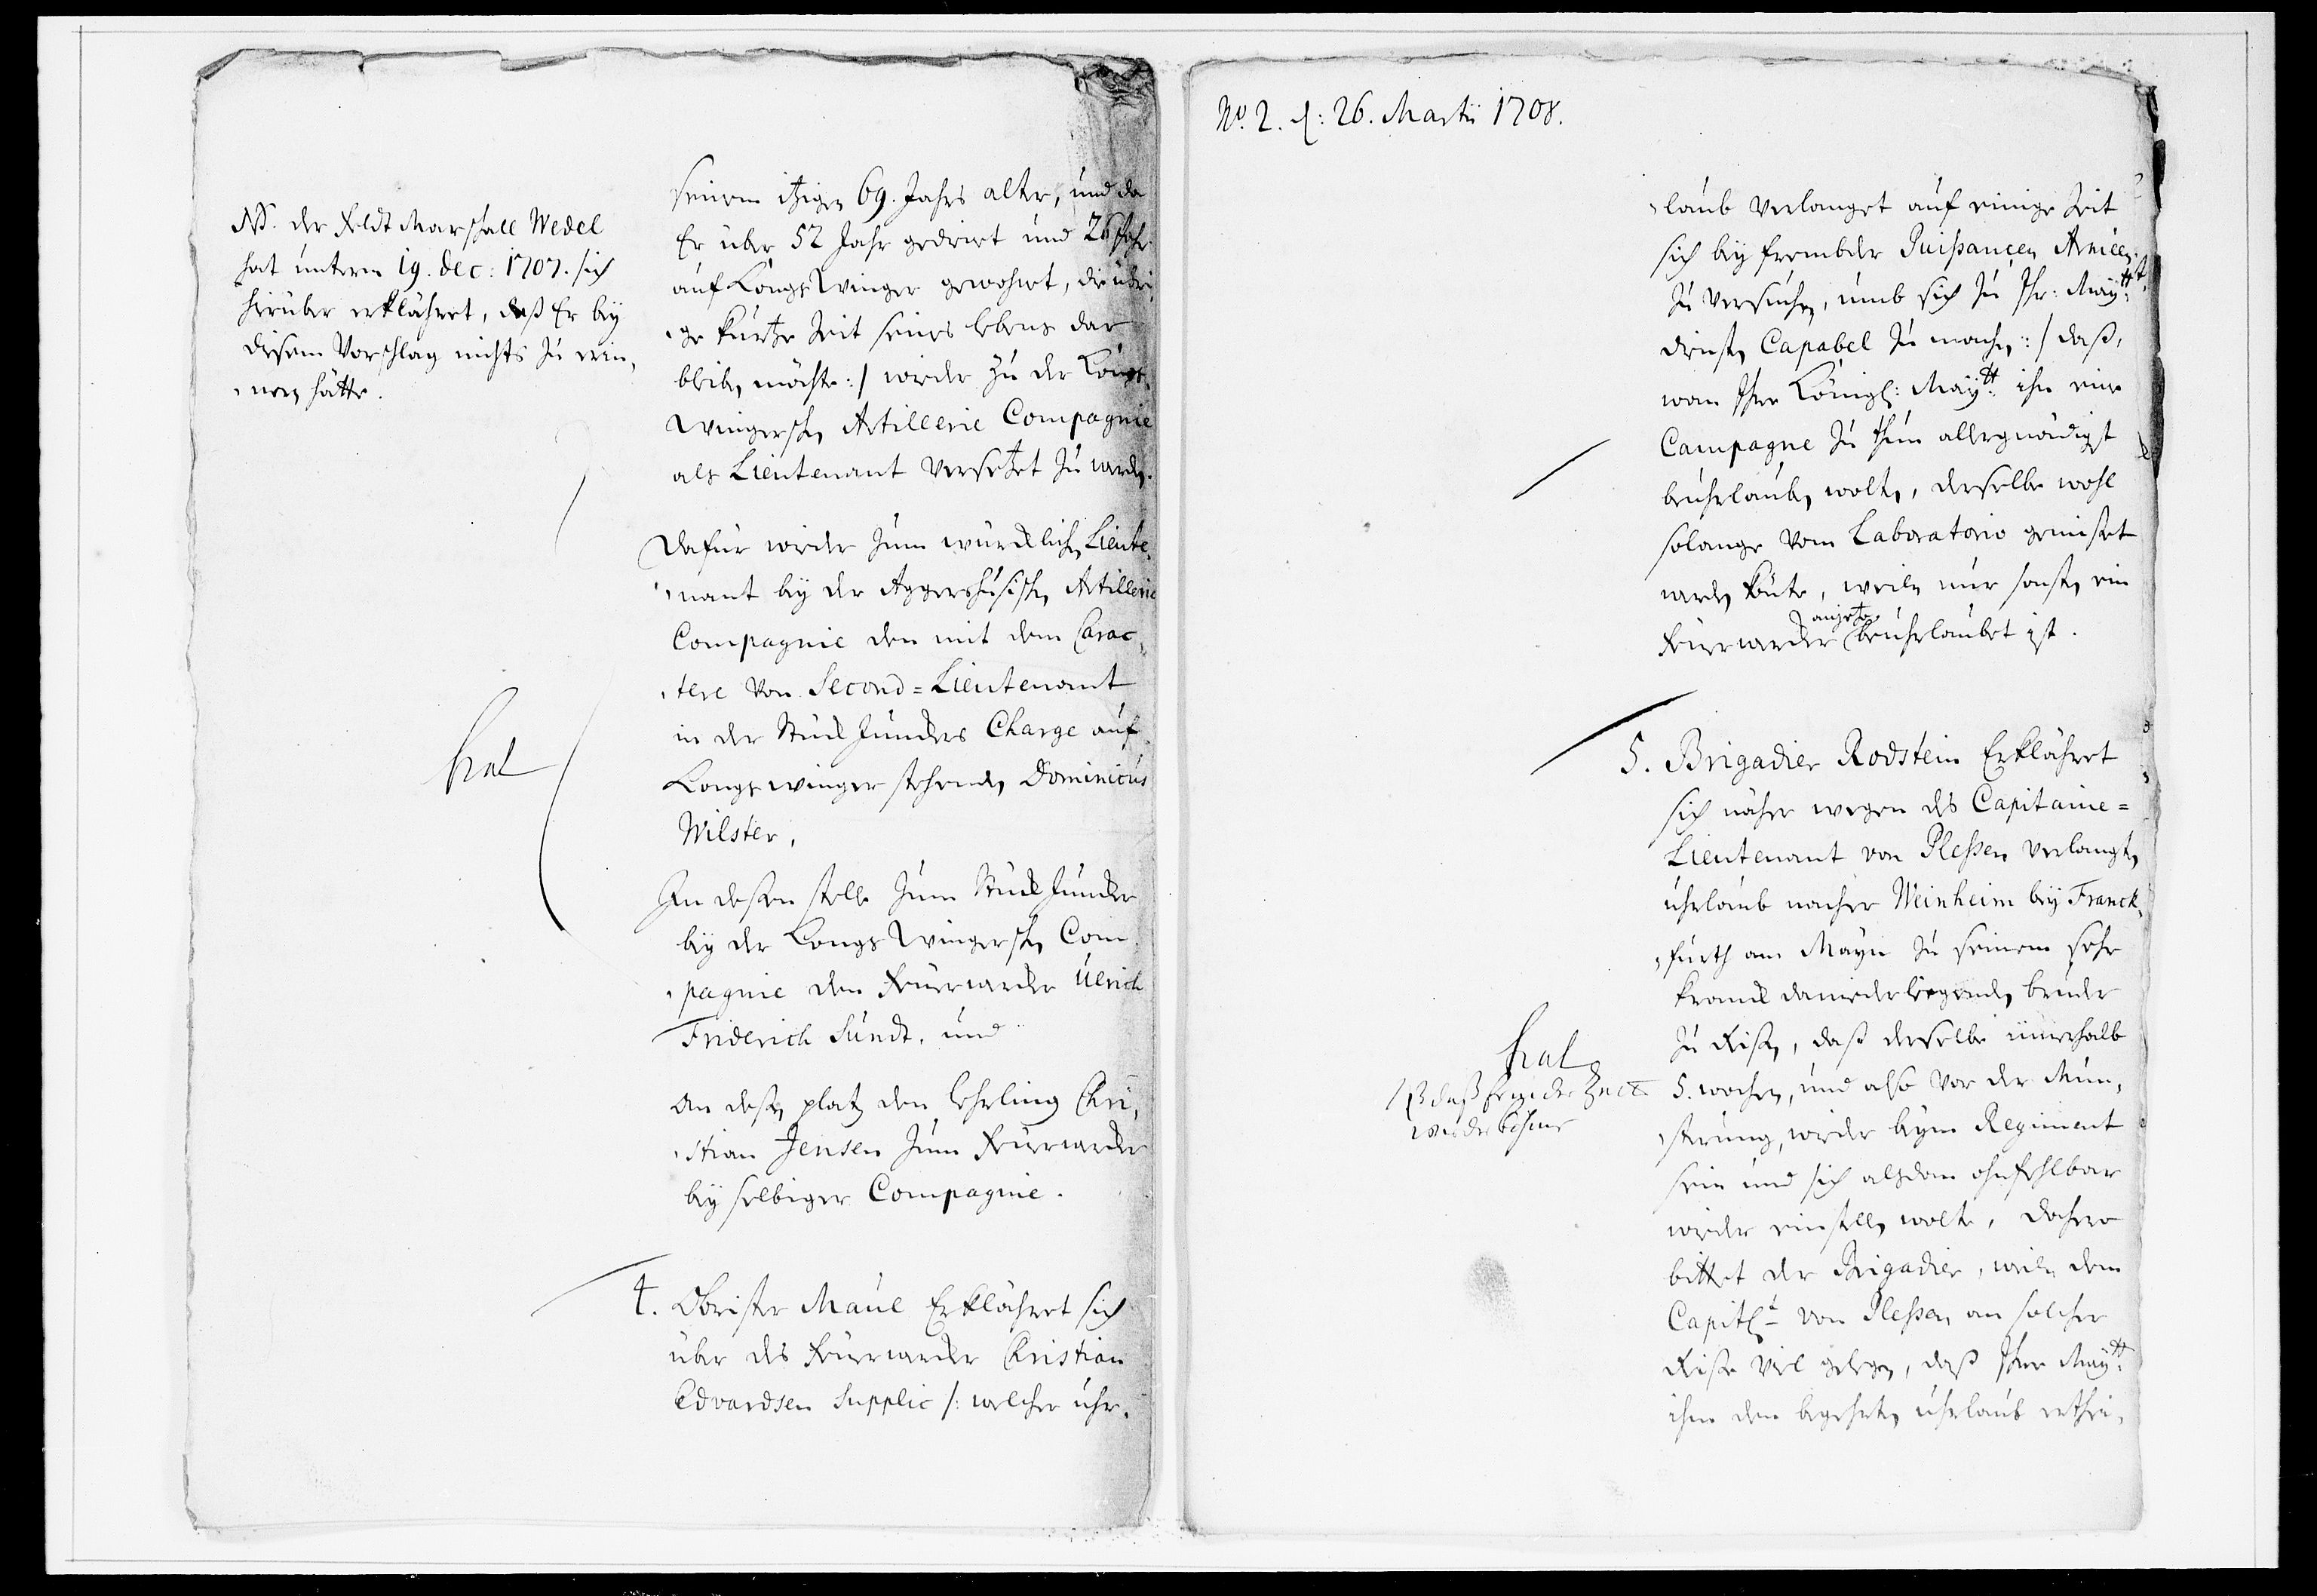 NB. der Feldt Marschall Wedel
hat unterm 19. Dec: 1707. sich
hierüber erklähret, daß Er bey
diesem Vorschlag nichts zu erin,
,nern hätte.
seinem itzigen 69. Jahrs alter, und da
Er über 52 Jahr gedienet und 26 Jahr
auf Kongs Winger gewohnet, die übri,
,ge kurtze Zeit seines lebens dar
bleiben möchte:/ wieder zu der Kongs,
Wingerschen Artillerie Compagnie
als Lieutenant versetzet zu werden.
Dafür wieder zum würcklichen Lieute,
,nant bey der Aggershusischen Artillerie
Compagnie den mit dem Carac,
,tere von Second=Lieutenant
in der Stück Junckers Charge auf
Kongswinger stehenden Dominicus
Wilster.
hat
In deßen stelle zum Stück Juncker
bey der Kongs Wingerschen Com,
,pagnie den Feuerwercker Ulrich
Friderich Sundt, und
An deßen platz den Lehrling Chri,
,stian Jensen zum Feuerwercker
bey selbiger Compagnie.
4. Obrister Maul Erklähret sich
über des Feuerwercker Christian
Edvardsen Supplic /: welcher uhr,
No. 2. d: 26. Martii 1708.
,laub verlanget auf einige Zeit
sich bey frembder Puissancen Armeen
zu versuchen, umb sich zu Ihr: Maytt:
diensten Capabel zu machen:/ daß,
wan Ihre Königl: Maytt: ihn eine
Campagne zu thun allergnädigst
beuhrlauben wolten, derselbe wohl
solange vom Laboratorio gemißet
werden könte, weilen nur sonsten ein
anjetzo
Feuerwercker beuhrlaubet ist.
5. Brigadier Rodstein Erklähret
sich näher wegen des Capitaine=
Lieutenant von Pleßen verlangten
uhrlaub nacher Weinheim bey Franck,
,furth am Mayn zu seinem sehr
kranck daniederliegenden bruder
zu Reisen, daß derselbe innerhalb
5. wochen, und also vor der Mun,
,sterung, wieder beym Regiment
sein und sich alßdan ohnfehlbar
wieder einstellen wolte, Dahero
bittet der Brigadier, weilen dem
Capitlt von Pleßen an solcher
Reise viel gelegen, daß Ihre Maytt:
ihm den begehrten uhrlaub erthei,
hat
daß er in der Zeit
wieder komme